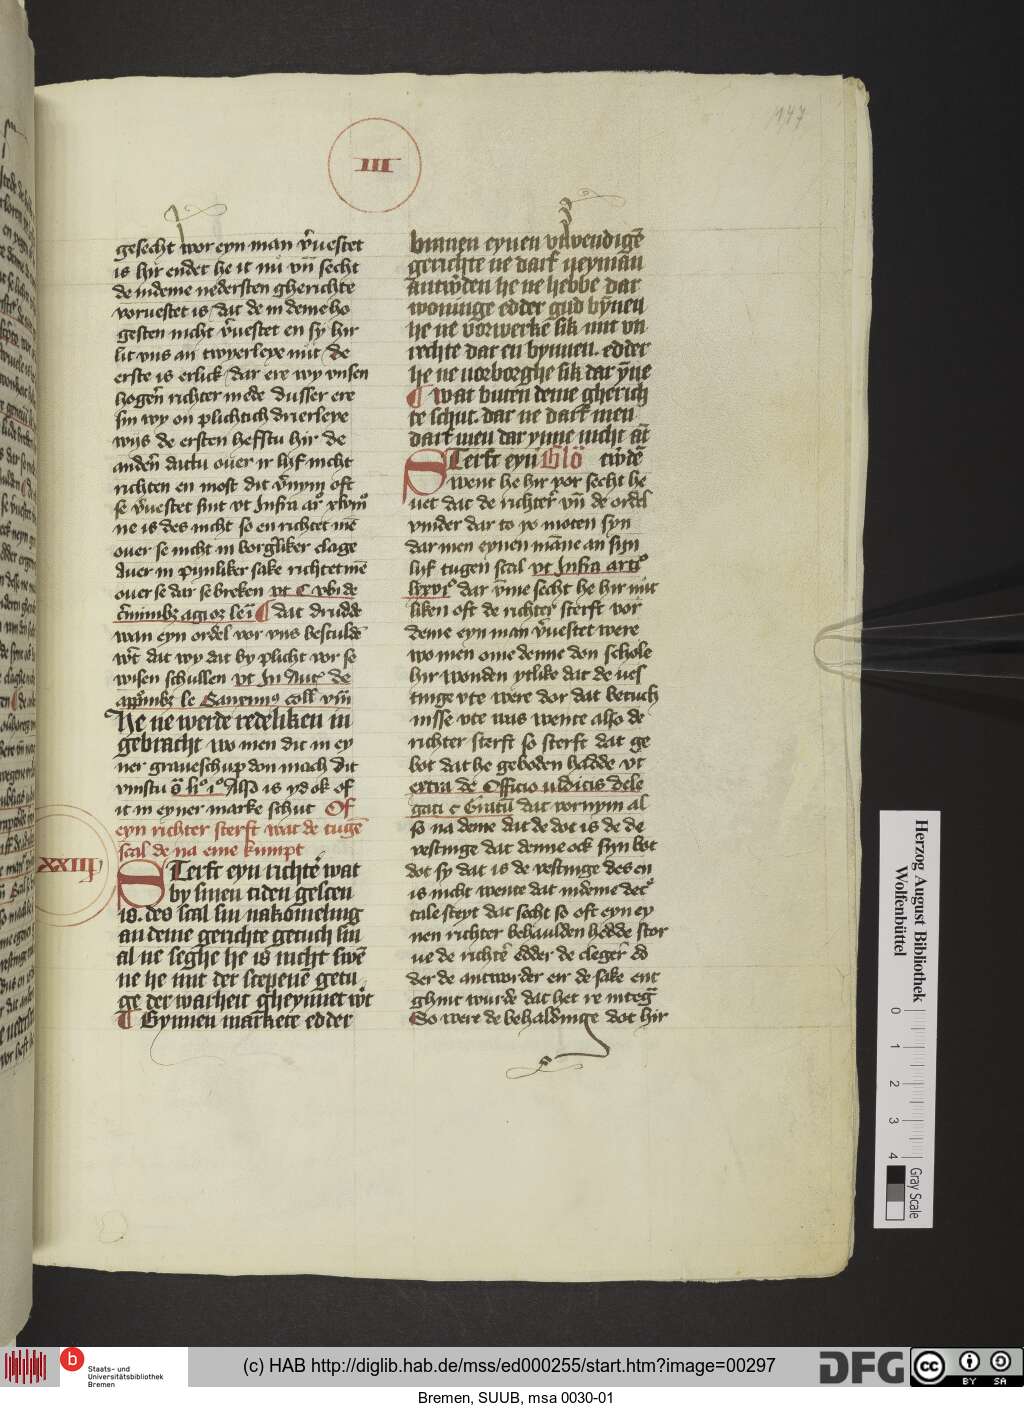 147
III
gesecht wor eyn man v̄uestet
is hir endet he it nu vn̄ secht
de indeme nedersten gherichte
voruestet is dat de in deme ho
gesten nicht v̄uestet en sy hir
lit vns an twyerleye nut de
erste is erlick dar ere wy vnsen
hogen̄ richter mede dusser ere
sin wy on plichtich drierleye
wijs de ersten hefstu hir de
anden̄ dattu ouer ir lyf nicht
richten en most dit v̄nym oft
se v̄uestet sint vt Infra ar°
ne is des nicht so en richtet mē
ouer se nicht in borgliker clage
Auer in pynliker sake richtet mē
ouer se dar se breken vt C vbi de
dat drudde
wan eyn ordel vor vns besculde
wt dit wy dat by plicht vor se
wisen schullen vt In Aut de
He ne werde redeliken in
gebracht wo men dit in ey
ner graueschup don mach dit
vinstu Also is yd ok of
it in eyner marke schut Of
eyn richter sterft wat de tugē
scal de na eme kumpt
XXIIII
Sterft eyn richte wat
by sinen tiden gesceu
is. des scal sin nakomeling
an deme gerichte getuch sin
al ne seghe he is nicht swē
ne he mit der scepenē getu
ge der warheit gheynnet wt
Bynnen markete edder
binnen eynen vtwendigē
gerichte ne darf neyman
antwden he ne hebbe dar
woninge edder gud bynen
he ne vorwerke sik mit vn
rechte dar en bynnen. edder
he ne uorborghe sik dar ynne
Wat buten deme gherich
te schut. dar ne darf men
darf men dar ynne nicht āt
Sterft eyn Glo twdē
went he hir vor secht he
uet dat de richter vn̄ de ordel
vinder dar to vo moten syn
dar men eynen māne an syn
lyf tugen scal vt Infra arti°
lxxvi° dar v̄me secht he hir mit
liken oft de richter sterft vor
deme eyn man v̄uestet were
wo men ome denne don schole
hir wonden ytlike dat de ues
tinge vte were dor dat betuch
nisse vte was wente also de
richter sterft so sterft dat ge
bot dat he geboden hadde vt
extra de Officio uldicis dele
gati c Gratū dat vornym al
so na deme dat de dot is de de
vestinge dat denne ock syn bot
dot sy dat is de vestinge des en
is nicht wente dat indeme det°
tale steyt dat secht so oft eyn ey
nen richter behaulden hedde stor
ue de richte edder de cleger ed
der de antworder eir de sake ent
ghint wurde dat het re inteḡ
So were de behaldinge dot hir
Herzog August Bibliothek
Wolfenbüttel
0 1 2 3 4
Gray Scale
b
Staats- und
Universitätsbibliothek
Bremen
(c) HAB http://diglib.hab.de/mss/ed000255/start.htm?image=00297
DFG
cc BY SA
Bremen, SUUB, msa 0030-01